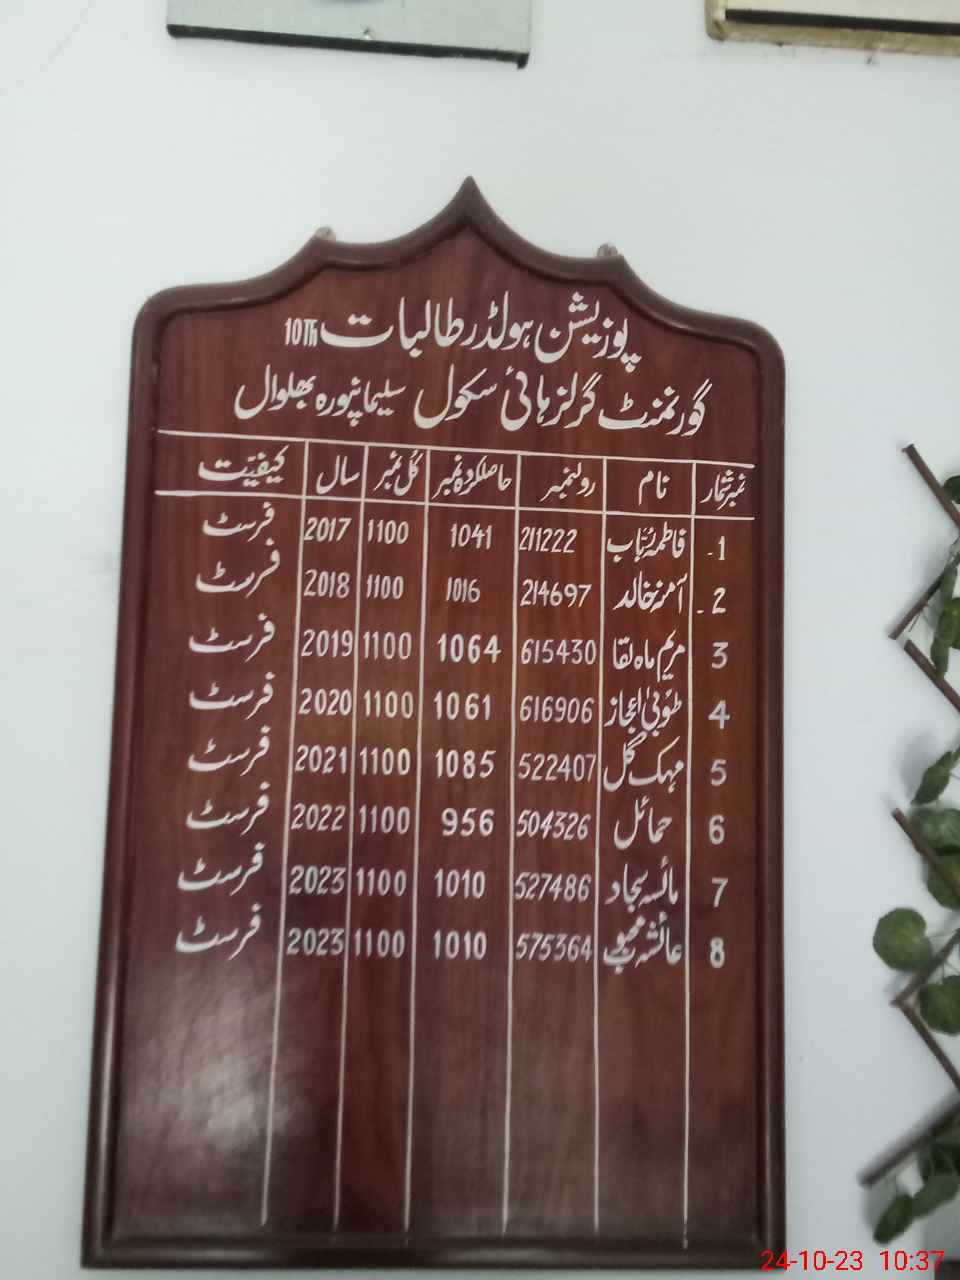 پوزیشن ہولڈر طالبات 10Th
گورنمنٹ گرلز ہائی سکول سلیمانپورہ بھلوال
نمبر شمار نام رولنمبر حاصلکردہ نمبر کُل نمبر سال کیفیّت
1- فاطمہ رُبّاب 211222 1041 1100 2017 فرسٹ
2- آمنہ خالد 214697 1016 1100 2018 فرسٹ
3 مریم ماہ لقا 615430 1064 1100 2019 فرسٹ
4 طوُبیٰ اعجاز 616906 1061 1100 2020 فرسٹ
5 مہک گل 522407 1085 1100 2021 فرسٹ
6 حمائل 504326 956 1100 2022 فرسٹ
7 مائسہ سجاد 527486 1010 1100 2023 فرسٹ
8 عائشہ محبوب 575364 1010 1100 2023 فرسٹ
24-10-23 10:37